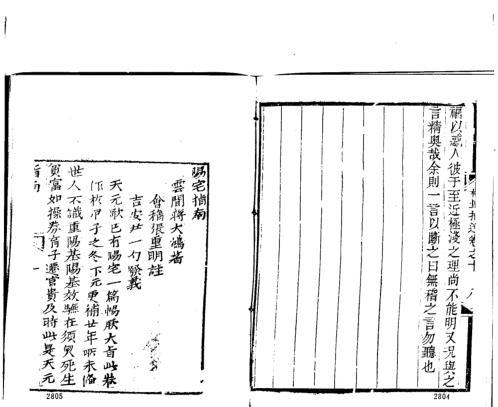 禍以惑人彼于至近極淺之理尚不能明又况與之
言精奧哉余則一言以斷之曰無稽之言勿聽也
卷之十 八
2804
陽宅指南
雲間蔣大鴻著
會稽張重明註
吉安 一勺發義
天元歌已有陽宅一篇暢歌大旨此卷
作於甲子之冬下元更補廿年所未備
世人不識重陽基陽基效驗在須臾死生
貧富如操券育子遷官貴及時此是天元
指南
2805